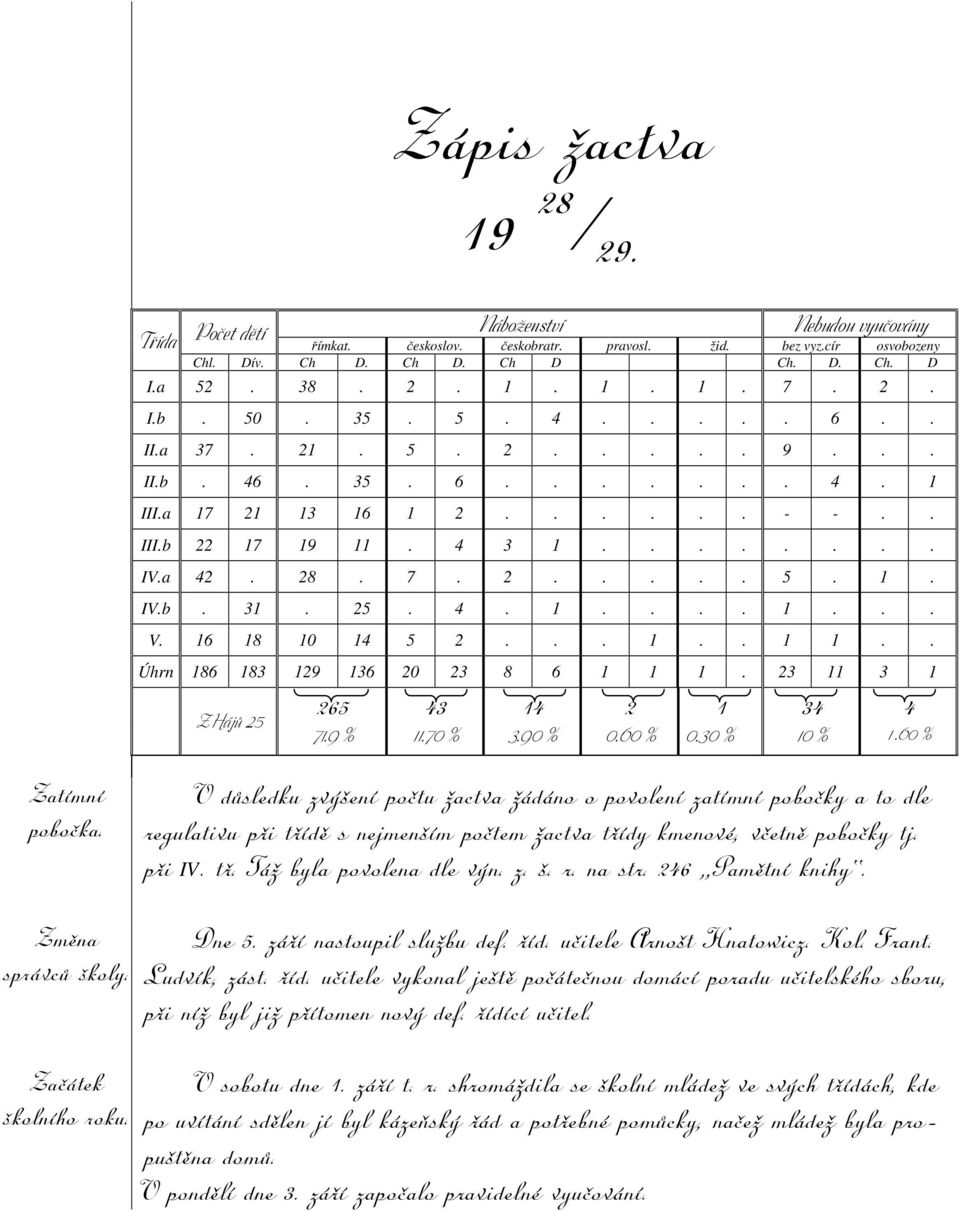 Zápis žactva
19 28/29.
Třída Počet dětí Náboženství Nebudou vyučovány
římkat. českoslov. českobratr. pravosl. žid. bez vyz.cír osvobozeny
Chl. Dív. Ch D. Ch D. Ch D Ch. D. Ch. D
I.a 52 . 38 . 2 . 1 . 1 . 1 . 7 . 2 .
I.b . 50 . 35 . 5 . 4 . . . . . 6 . .
II.a 37 . 21 . 5 . 2 . . . . . 9 . . .
II.b . 46 . 35 . 6 . . . . . . . 4 . 1
III.a 17 21 13 16 1 2 . . . . . . - - . .
III.b 22 17 19 11 . 4 3 1 . . . . . . . .
IV.a 42 . 28 . 7 . 2 . . . . . 5 . 1 .
IV.b . 31 . 25 . 4 . 1 . . . . 1 . . .
V. 16 18 10 14 5 2 . . . 1 . . 1 1 . .
Úhrn 186 183 129 136 20 23 8 6 1 1 1 . 23 11 3 1
Z Hájů 25 265 43 14 2 1 34 4
71.9 % 11.70 % 3.90 % 0.60 % 0.30 % 10 % 1.60 %
Zatímní V důsledku zvýšení počtu žactva žádáno o povolení zatímní pobočky a to dle
pobočka. regulativu při třídě s nejmenším počtem žactva třídy kmenové, včetně pobočky tj.
při IV. tř. Táž byla povolena dle výn. z. š. r. na str. 246 ,,Pamětní knihy“.
Změna Dne 5. září nastoupil službu def. říd. učitele Arnošt Hnatowicz. Kol. Frant.
správců školy. Ludvík, zást. říd. učitele vykonal ještě počátečnou domácí poradu učitelského sboru,
při níž byl již přítomen nový def. řídící učitel.
Začátek V sobotu dne 1. září t. r. shromáždila se školní mládež ve svých třídách, kde
školního roku. po uvítání sdělen jí byl kázeňský řád a potřebné pomůcky, načež mládež byla pro-
puštěna domů.
V pondělí dne 3. září započalo pravidelné vyučování.